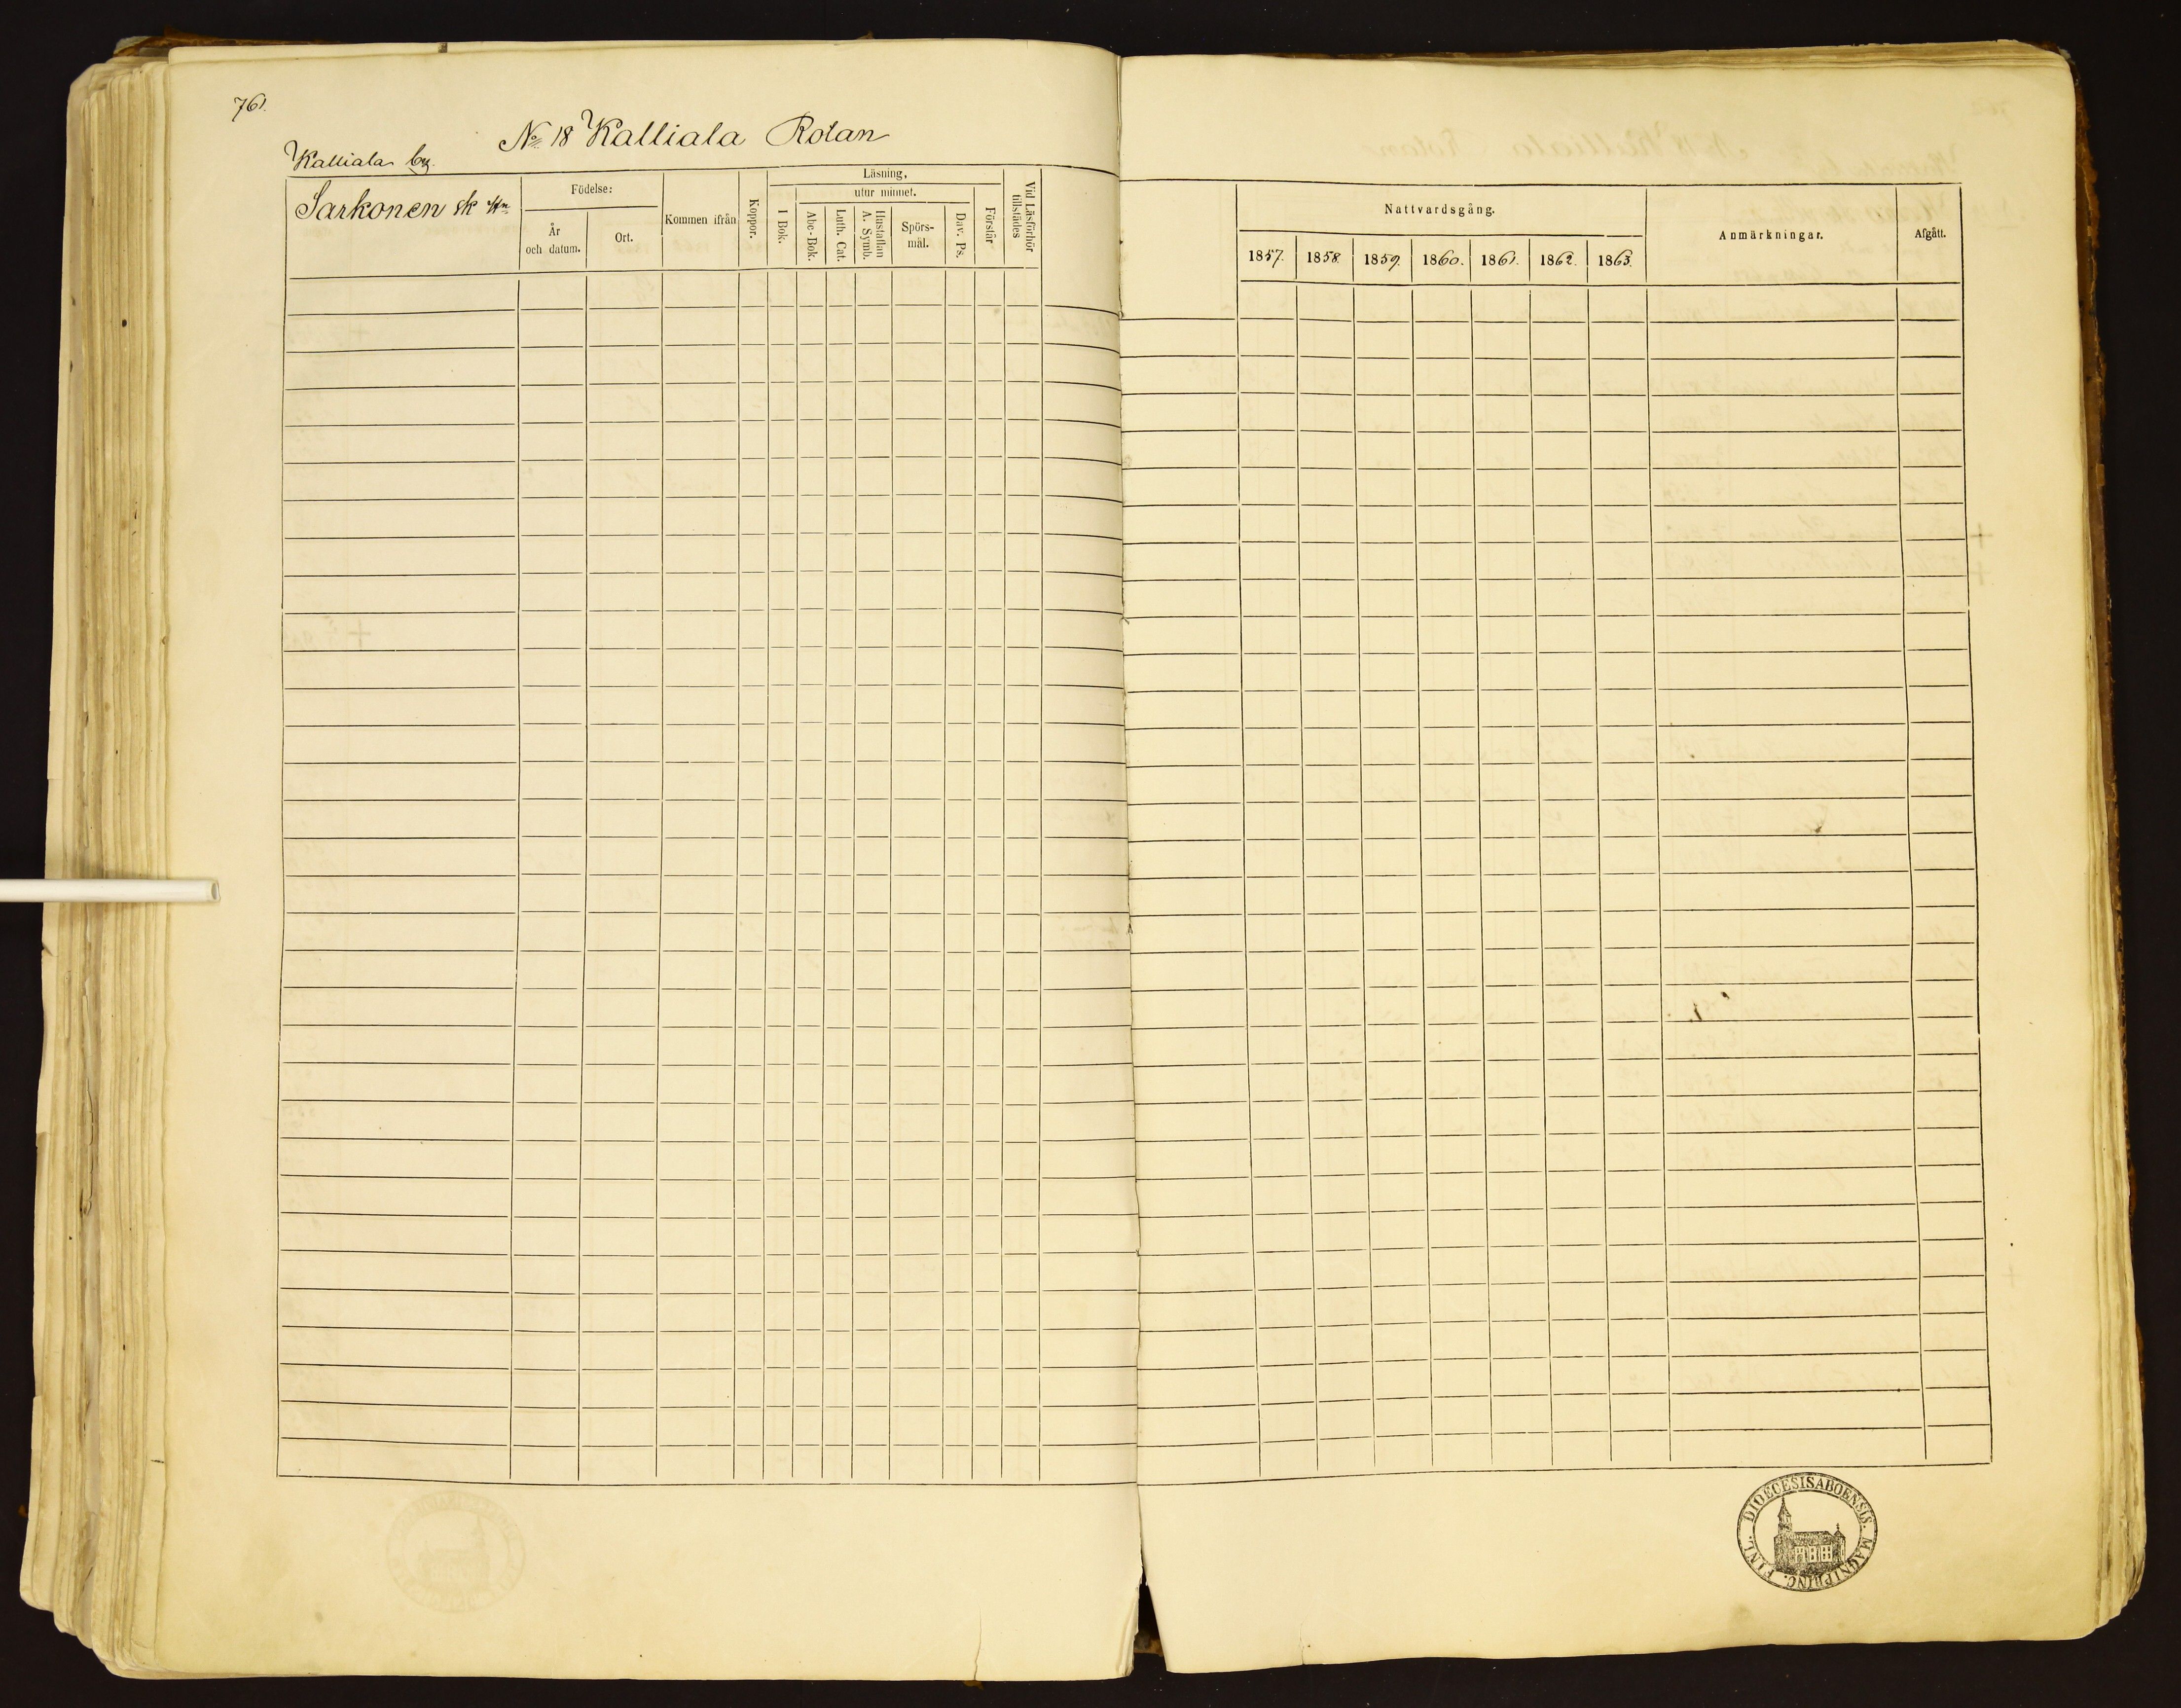 761.
No 18 Kalliala Rotan
Kalliala by.
Sarkonen sk
Födelse:
År och datum.
Ort.
Kommen ifrån
Koppor.
Läsning,
I Bok.
utur minnet.
Abc-Bok.
Luth. Cat.
Hustaflan A. Symb.
Spörs-mål.
Dav. Ps.
Förstår
Vid Läsförhör tillstädes
Nattvardsgång.
1857. 1858. 1859. 1860. 1861. 1862. 1863.
Anmärkningar.
Afgått.
DIOECESISABOENSIS. MAGNIPRINC. FINL.